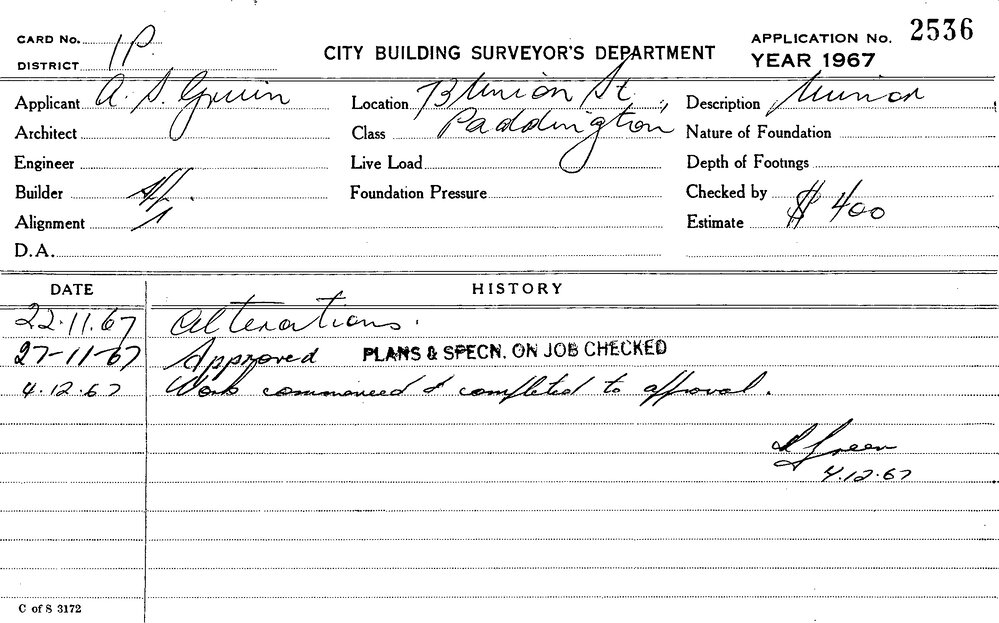 CARD No. 1P
DISTRICT
CITY BUILDING SURVEYOR'S DEPARTMENT
APPLICATION No. 2536
YEAR 1967
Applicant A. S.
Location 73 Union St.,
Description Minor
Architect
Class Paddington
Nature of Foundation
Engineer
Live Load
Depth of Footings
Builder
Foundation Pressure
Checked by
Alignment
Estimate $ 400
D.A.
DATE HISTORY
22.11.67 Alterations.
27-11-67 Approved PLANS & SPECN. ON JOB CHECKED
4.12.67 Work commenced & completed to approval.
Green
4.12.67
C of S 3172